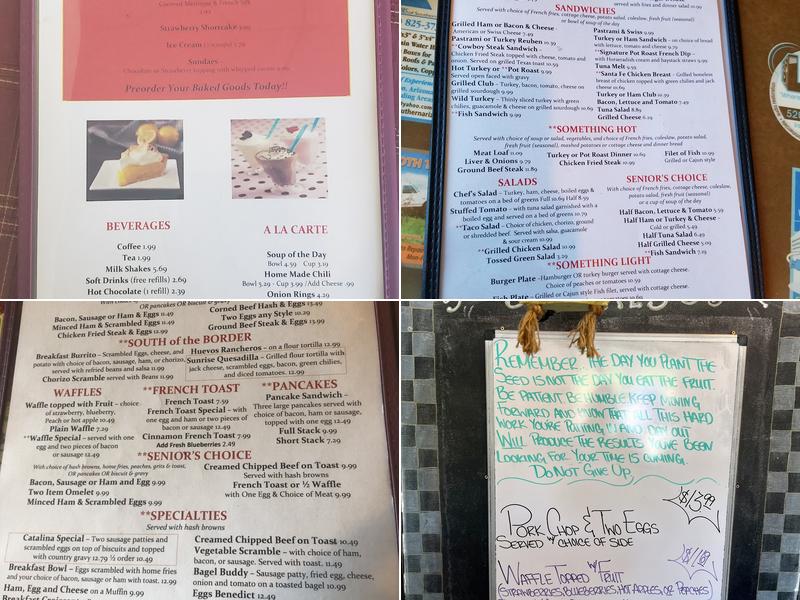 Coconut Meringue & French Silk
3.99
Strawberry Shortcake 3.99
Ice Cream
Sundaes
Chocolate or Strawberry topping with whipped cream
Preorder Your Baked Goods Today!!
BEVERAGES
Coffee 1.99
Tea 1.99
Milk Shakes 5.69
Soft Drinks (free refills) 2.69
Hot Chocolate (1 refill) 2.39
A LA CARTE
Soup of the Day
Bowl 4.59 Cup 3.19
Home Made Chili
Bowl 5.29 - Cup 3.99 /Add Cheese .99
Onion Rings 4.29
served with fries and dinner salad 10.99
SANDWICHES
Served with choice of French fries, cottage cheese, potato salad, coleslaw, fresh fruit (seasonal)
or bowl of soup of the day
Grilled Ham or Bacon & Cheese -
American or Swiss Cheese 7.49
Pastrami or Turkey Reuben 10.59
**Cowboy Steak Sandwich -
Chicken Fried Steak topped with cheese, tomato and
onion. Served on grilled Texas toast 10.59
Hot Turkey or **Pot Roast 9.99
Served open faced with gravy
Grilled Club - Turkey, bacon, tomato, cheese on
grilled sourdough 9.99
Wild Turkey - Thinly sliced turkey with green
chilies, guacamole & cheese on grilled sourdough 10.69
**Fish Sandwich 9.99
Pastrami & Swiss 9.99
Turkey or Ham Sandwich - on choice of bread
with lettuce, tomato and cheese 9.79
**Signature Pot Roast French Dip -
with Horseradish cream and haystack straws 9.99
Tuna Melt 9.59
**Santa Fe Chicken Breast - Grilled boneless
breast of chicken topped with green chilies and jack
cheese 10.69
Turkey or Ham Club 10.99
Bacon, Lettuce and Tomato 7.49
Tuna Salad 8.89
Grilled Cheese 6.29
**SOMETHING HOT
Served with choice of soup or salad, vegetables, and choice of French fries, coleslaw, potato salad,
fresh fruit (seasonal), mashed potatoes or cottage cheese and dinner bread
Meat Loaf 11.09
Liver & Onions 9.79
Ground Beef Steak 11.89
Turkey or Pot Roast Dinner 10.69
Chicken Fried Steak 10.99
Filet of Fish 10.99
Grilled or Cajun style
SALADS
Chef's Salad - Turkey, ham, cheese, boiled eggs &
tomatoes on a bed of greens Full 10.69 Half 8.59
Stuffed Tomato - with tuna salad garnished with a
boiled egg and served on a bed of greens 10.79
**Taco Salad - Choice of chicken, chorizo, ground
or shredded beef. Served with salsa, guacamole
& sour cream 10.99
**Grilled Chicken Salad 10.99
Tossed Green Salad 3.29
SENIOR'S CHOICE
With choice of French fries, cottage cheese, coleslaw,
potato salad, fresh fruit (seasonal)
or a cup of soup of the day
Half Bacon, Lettuce & Tomato 5.59
Half Ham or Turkey & Cheese -
Cold or grilled 5.49
Half Tuna Salad 6.49
Half Grilled Cheese 5.09
**Fish Sandwich 7.29
**SOMETHING LIGHT
Burger Plate - Hamburger OR turkey burger served with cottage cheese.
Choice of peaches or tomatoes 10.59
Fish Plate - Grilled or Cajun style Fish filet, served with cottage cheese.
OR pancakes OR biscuit & gravy
Bacon, Sausage or Ham & Eggs 11.49
Minced Ham & Scrambled Eggs 11.49
Chicken Fried Steak & Eggs 12.99
Corned Beef Hash & Eggs 13.49
Two Eggs any Style 10.29
Ground Beef Steak & Eggs 13.99
**SOUTH of the BORDER
Breakfast Burrito - Scrambled Eggs, cheese, and
potato with choice of bacon, sausage, ham, or chorizo,
served with refried beans and salsa 11.99
Chorizo Scramble served with Beans 11.99
Huevos Rancheros - on a flour tortilla 12.99
Sunrise Quesadilla - Grilled flour tortilla with
jack cheese, scrambled eggs, bacon, green chilies,
and diced tomatoes. 12.99
WAFFLES
Waffle topped with Fruit - choice
of strawberry, blueberry,
Peach or hot apple 10.49
Plain Waffle 7.29
**Waffle Special - served with one
egg and two pieces of bacon
or sausage 12.49
**FRENCH TOAST
French Toast 7.59
French Toast Special - with
one egg and ham or two pieces of
bacon or sausage 12.49
Cinnamon French Toast 7.99
Add Fresh Blueberries 2.49
**PANCAKES
Pancake Sandwich -
Three large pancakes served with
choice of bacon, ham or sausage,
topped with one egg 12.49
Full Stack 9.99
Short Stack 7.29
**SENIOR'S CHOICE
With choice of hash browns, home fries, peaches, grits & toast,
OR pancakes OR biscuit & gravy
Bacon, Sausage or Ham and Egg 9.99
Two Item Omelet 9.99
Minced Ham & Scrambled Eggs 9.99
Creamed Chipped Beef on Toast 9.99
Served with hash browns
French Toast or ½ Waffle
with One Egg & Choice of Meat 9.99
**SPECIALTIES
Served with hash browns
Catalina Special - Two sausage patties and
scrambled eggs on top of biscuits and topped
with country gravy 12.79 ½ order 10.49
Breakfast Bowl - Eggs scrambled with home fries
and your choice of bacon, sausage or ham with toast. 12.99
Ham, Egg and Cheese on a Muffin 9.99
Creamed Chipped Beef on Toast 10.49
Vegetable Scramble - with choice of ham,
bacon, or sausage. Served with toast. 11.49
Bagel Buddy - Sausage patty, fried egg, cheese,
onion and tomato on a toasted bagel 10.99
Eggs Benedict 12.49
REMEMBER.. THE DAY YOU PLANT THE
SEED IS NOT THE DAY YOU EAT THE FRUIT.
BE PATIENT BE HUMBLE KEEP MOVING
FORWARD AND KNOW THAT ALL THIS HARD
WORK YOU'RE PUTTING IN AND DAY OUT
WILL PRODUCE THE RESULTS YOU'VE BEEN
LOOKING FOR YOUR TIME IS COMING.
DO NOT GIVE UP
$13.99
PORK CHOP & TWO EGGS
SERVED W/ CHOICE OF SIDE
WAFFLE TOPPED W/ FRUIT
(STRAWBERRIES, BLUEBERRIES, HOT APPLES, OR PEACHES